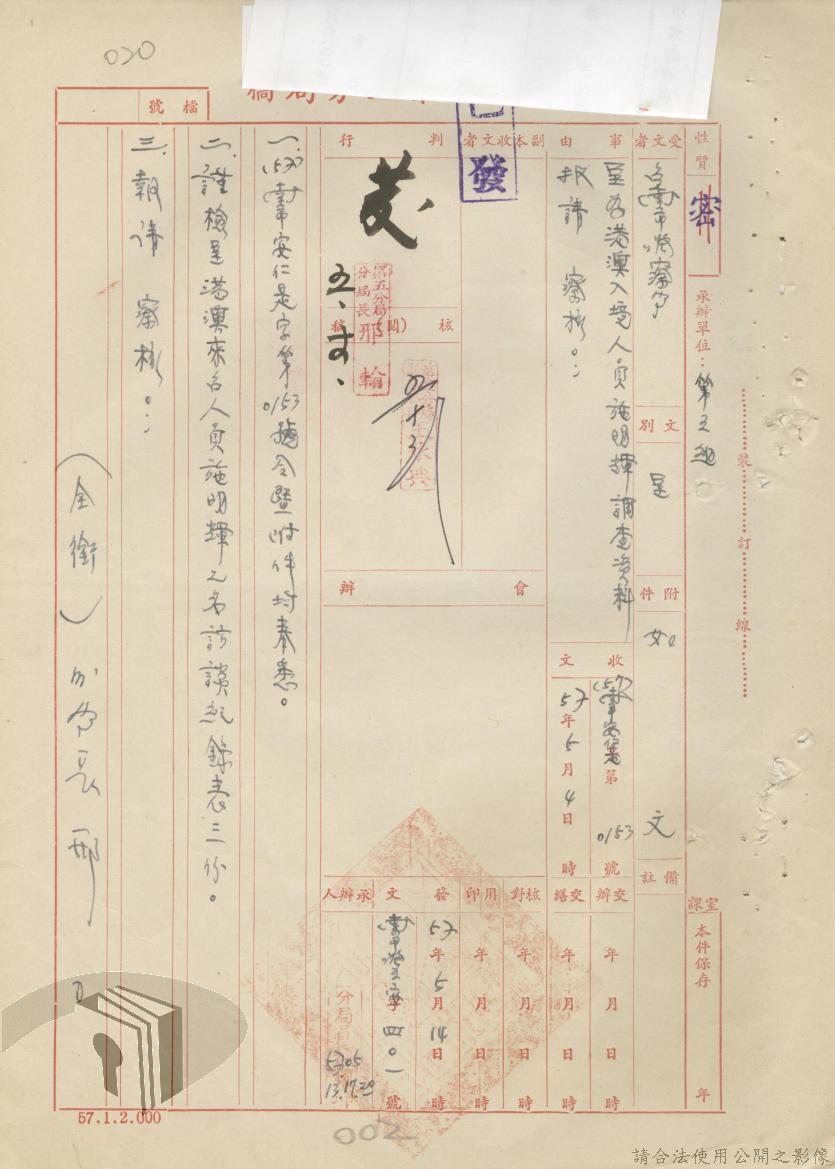 020
檔號
性質 密
承辦單位：第五組
裝訂線
受文者
文別 呈
附件 如文
備註
課室
本件保存 年
事由
呈為港澳入境人員施明輝調查資料
報請 察核。：
收文
57年5月4日 時
第0153號
交辦 年 月 日 時
交繕 年 月 日 時
副本收文者
發
會辦
核對 年 月 日 時
用印 年 月 日 時
發文 57年5月14日 時
四〇一號
判行
核(閱)
第五分局
分局長 邢翰
承辦人
分局
5705
13.1720
一、安仁是字第0153號令暨附件均奉悉。
二、謹檢呈港澳來台人員施明輝之名訪談紀錄表三份。
三、報請 察核。：
(全銜)分局長 邢
57.1.2.000
002
請合法使用公開之影像